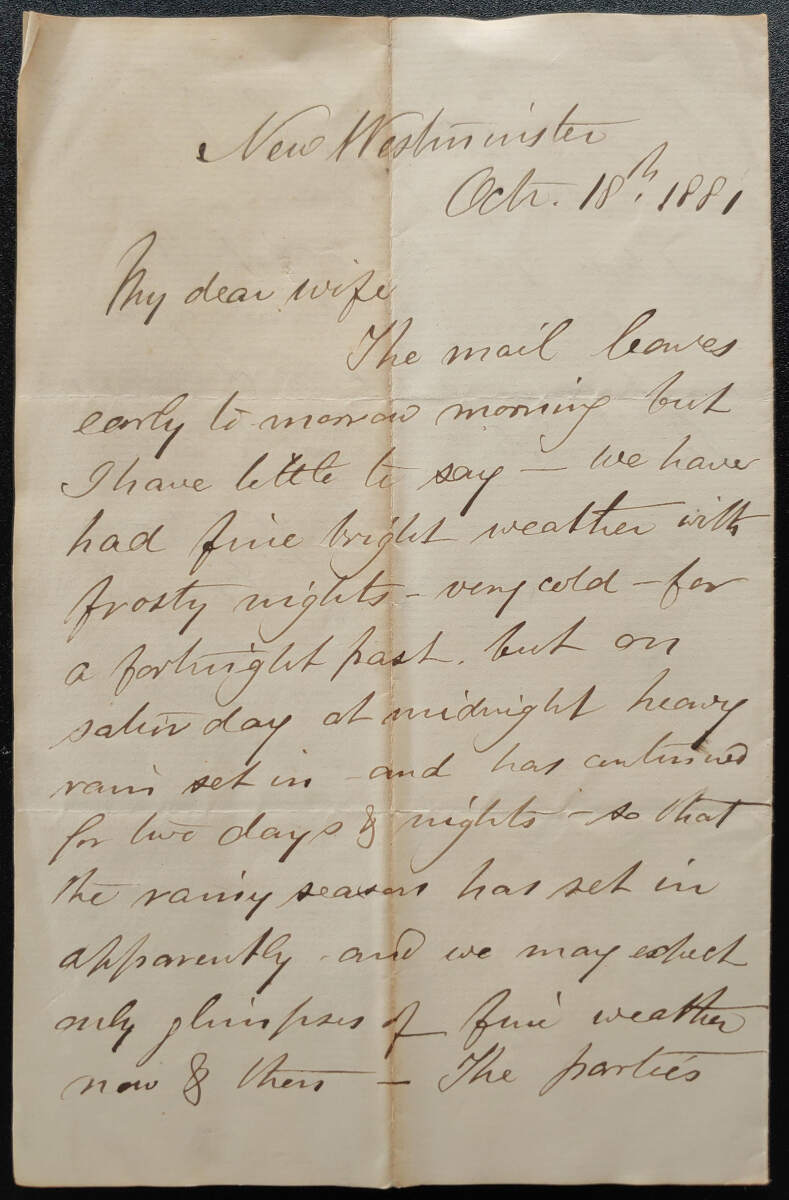 New Westminster
Octr. 18th. 1881
My dear wife
The mail leaves
early to-morrow morning but
I have little to say – we have
had fine bright weather with
frosty nights – very cold – for
a fortnight past. but on
saturday at midnight heavy
rain set in – and has continued
for two days & nights – so that
the rainy season has set in
apparently – and we may expect
only glimpses of fine weather
now & then – The parties